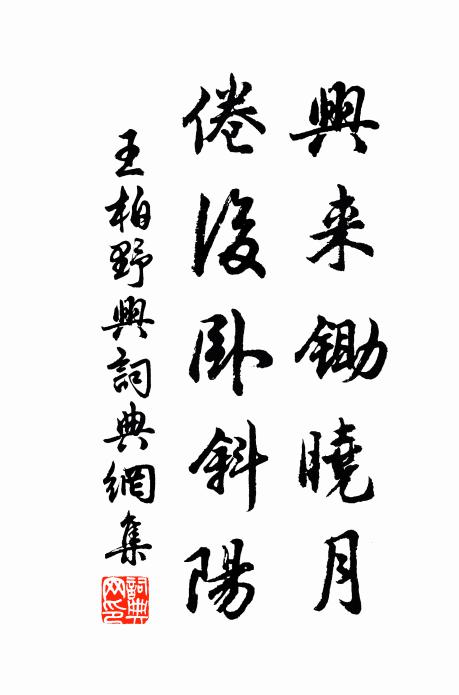 興来鋤曉月
倦後臥斜陽
王柏野興詞典網集
詞典网印